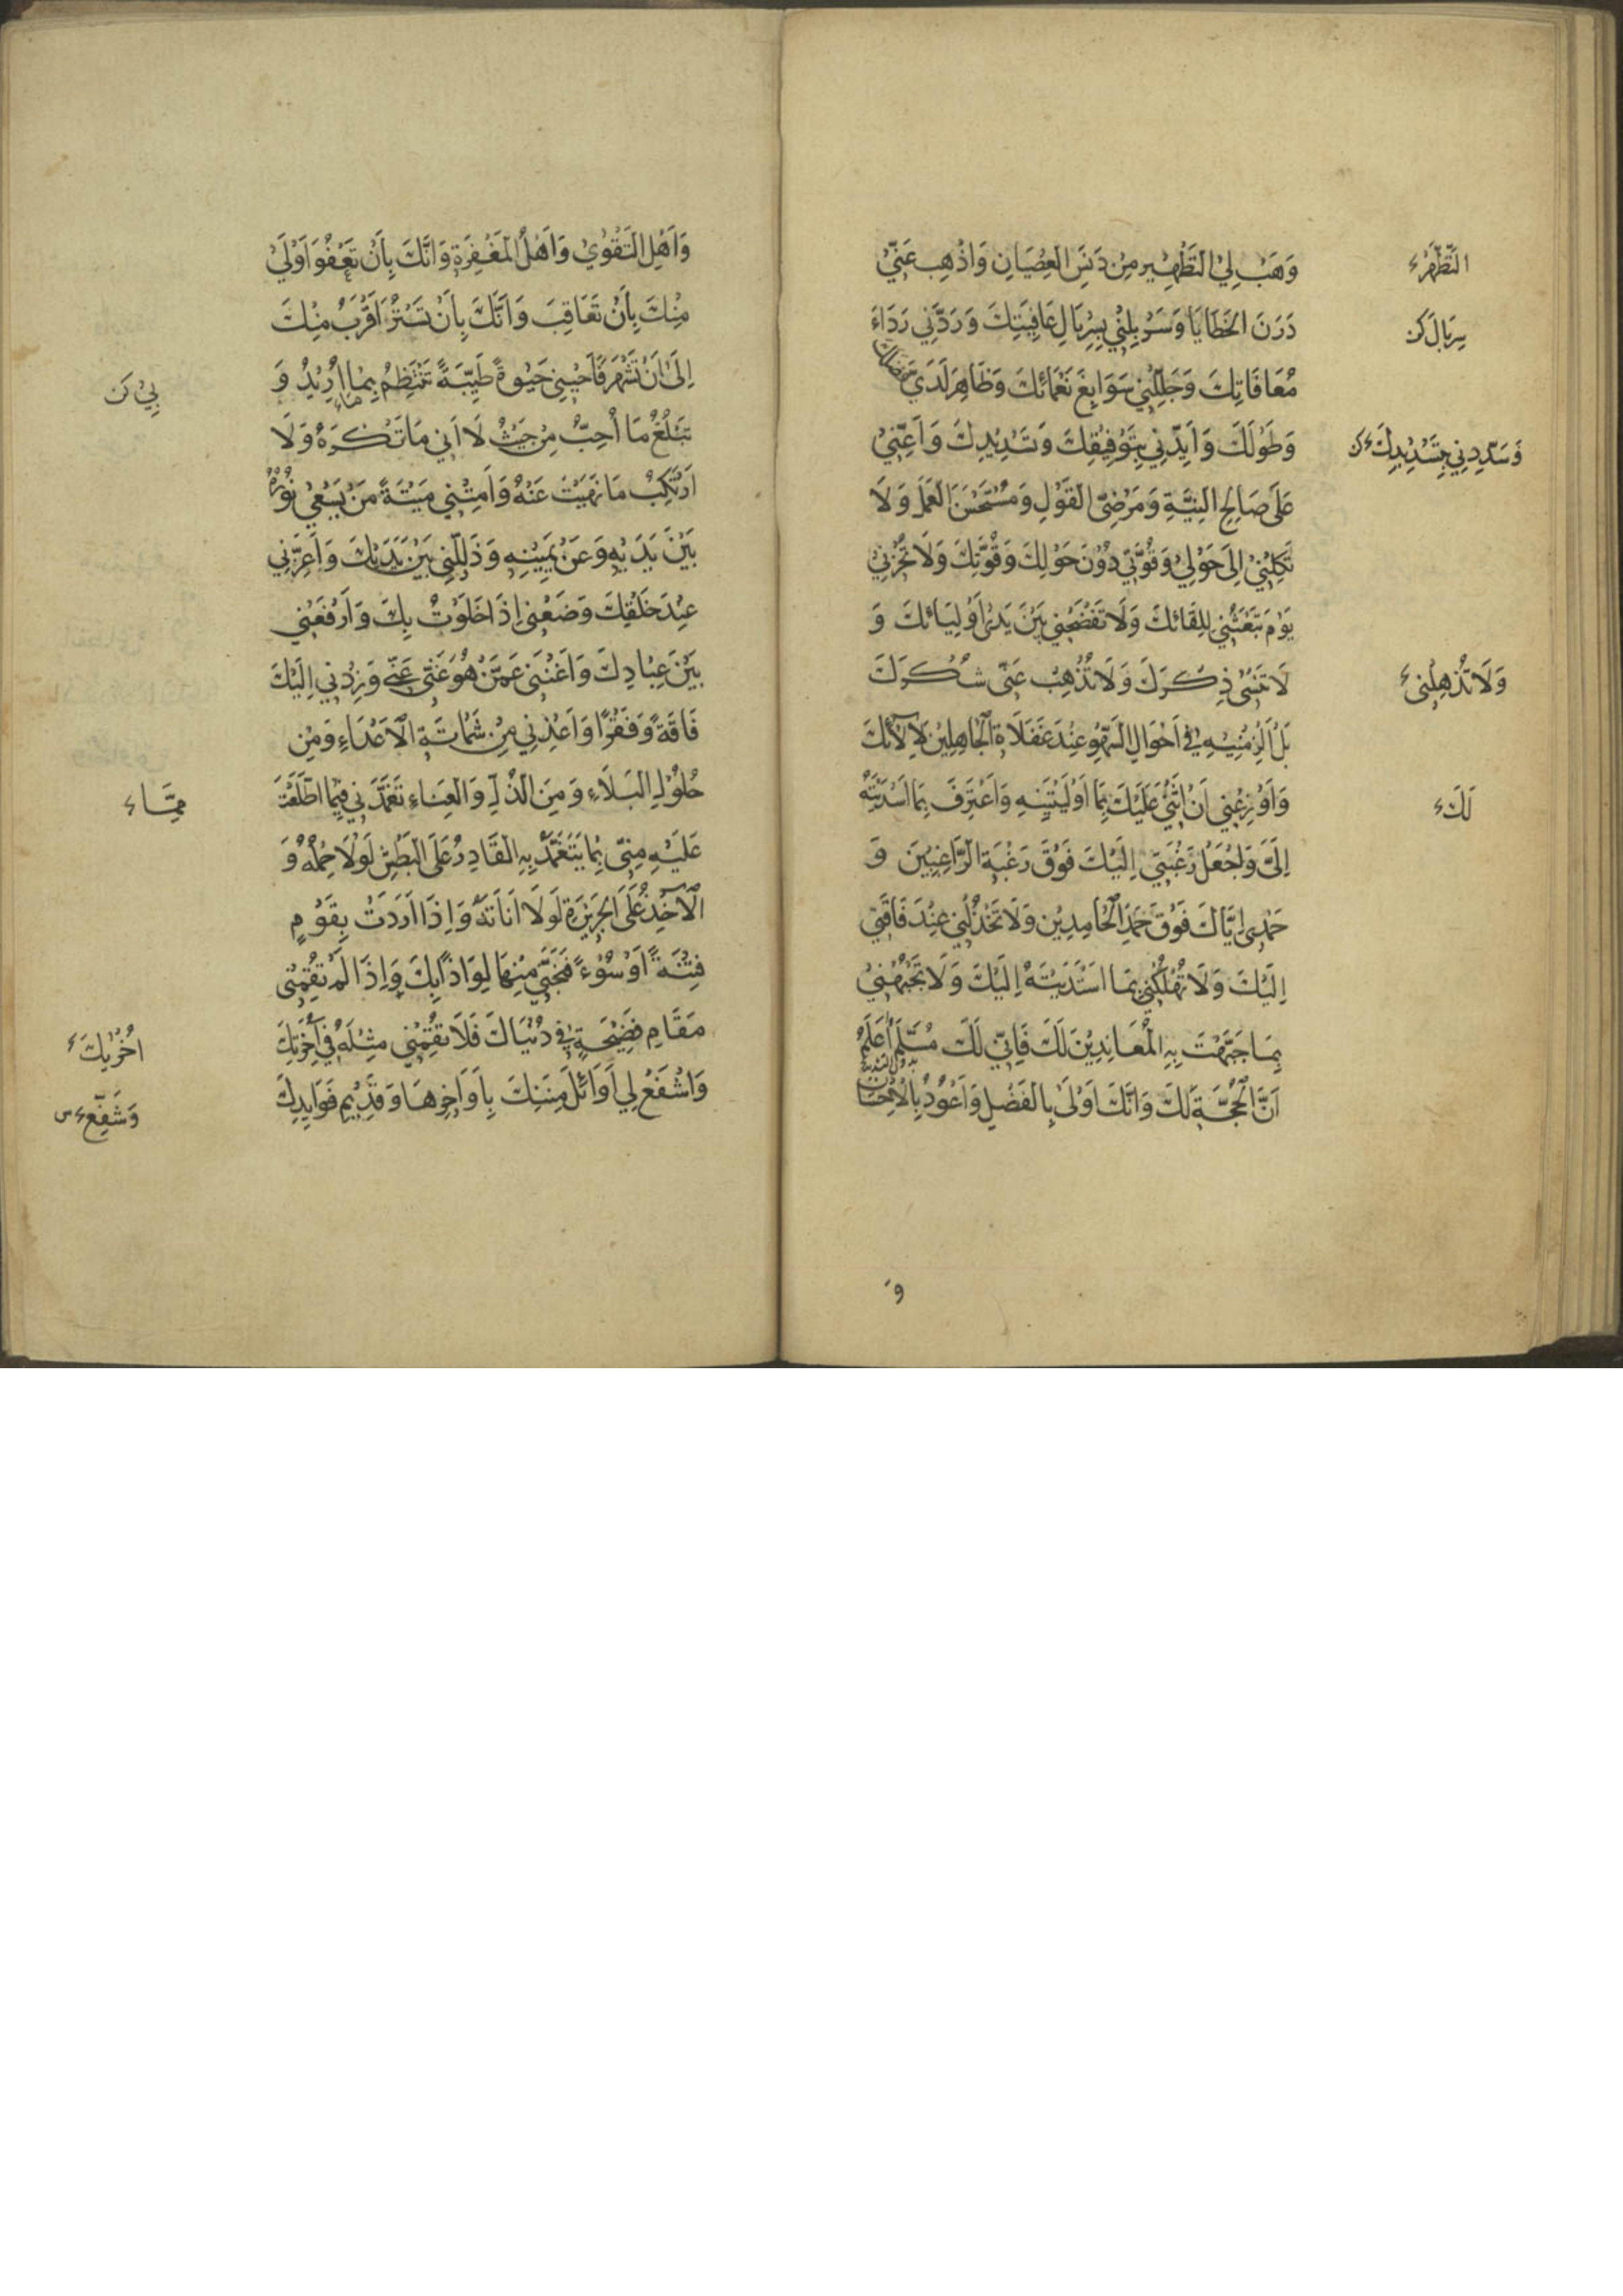 وَهَبْ لِيَ التَّطْهِيرَ مِنْ دَنَسِ الْعِصْيَانِ وَاَذْهِبْ عَنِّي
التَّطَهُّرَ
دَرَنَ الْخَطَايَا وَسَرْبِلْنِي بِسِرْبَالِ عَافِيَتِكَ وَرَدِّنِي رِدَاءَ
سِرْبَالَ
مُعَافَاتِكَ وَجَلِّلْنِي سَوَابِغَ نَعْمَائِكَ وَظَاهِرْ لَدَيَّ فَضْلَكَ
وَطَوْلَكَ وَاَيِّدْنِي بِتَوْفِيقِكَ وَتَسْدِيدِكَ وَاَعِنِّي
وَسَدِّدْنِي بِتَسْدِيدِكَ
عَلَى صَالِحِ النِّيَّةِ وَمَرْضِيِّ الْقَوْلِ وَمُسْتَحْسَنِ الْعَمَلِ وَلَا
تَكِلْنِي اِلَى حَوْلِي وَقُوَّتِي دُونَ حَوْلِكَ وَقُوَّتِكَ وَلَا تُخْزِنِي
يَوْمَ تَبْعَثُنِي لِلِقَائِكَ وَلَا تَفْضَحْنِي بَيْنَ يَدَيْ اَوْلِيَائِكَ وَ
لَا تُنْسِنِي ذِكْرَكَ وَلَا تُذْهِبْ عَنِّي شُكْرَكَ
وَلَا تُذْهِلْنِي
بَلْ اَلْزِمْنِيهِ فِي اَحْوَالِ السَّهْوِ عِنْدَ غَفَلَاةِ الْجَاهِلِينَ لِآلَائِكَ
وَاَوْزِعْنِي اَنْ اُثْنِيَ عَلَيْكَ بِمَا اَوْلَيْتَنِيهِ وَاَعْتَرِفَ بِمَا اَسْدَيْتَهُ
لَكَ
اِلَيَّ وَاجْعَلْ رَغْبَتِي اِلَيْكَ فَوْقَ رَغْبَةِ الرَّاغِبِينَ وَ
حَمْدِي اِيَّاكَ فَوْقَ حَمْدِ الْحَامِدِينَ وَلَا تَخْذُلْنِي عِنْدَ فَاقَتِي
اِلَيْكَ وَلَا تُهْلِكْنِي بِمَا اَسْدَيْتُهُ اِلَيْكَ وَلَا تَجْبَهْنِي
بِمَا جَبَهْتَ بِهِ الْمُعَانِدِينَ لَكَ فَاِنِّي لَكَ مُسَلِّمٌ اَعْلَمُ
اَنَّ الْحُجَّةَ لَكَ وَاَنَّكَ اَوْلَى بِالْفَضْلِ وَاَعْوَدُ بِالْاِحْسَانِ
وَ
وَاَهْلُ التَّقْوَى وَاَهْلُ الْمَغْفِرَةِ وَاَنَّكَ بِاَنْ تَعْفُوَ اَوْلَى
مِنْكَ بِاَنْ تُعَاقِبَ وَاَنَّكَ بِاَنْ تَسْتُرَ اَقْرَبُ مِنْكَ
اِلَى اَنْ تَشْهَرَ فَاَحْيِنِي حَيٰوةً طَيِّبَةً تَنْتَظِمُ بِمَا اُرِيدُ وَ
بِي
تَبْلُغُ مَا اُحِبُّ مِنْ حَيْثُ لَا اٰتِي مَا تَكْرَهُ وَلَا
اَرْتَكِبُ مَا نَهَيْتَ عَنْهُ وَاَمِتْنِي مِيتَةَ مَنْ يَسْعَى نُورُهُ
بَيْنَ يَدَيْهِ وَعَنْ يَمِينِهِ وَذَلِّلْنِي بَيْنَ يَدَيْكَ وَاَعِزَّنِي
عِنْدَ خَلْقِكَ وَضَعْنِي اِذَا خَلَوْتُ بِكَ وَارْفَعْنِي
بَيْنَ عِبَادِكَ وَاَغْنِنِي عَمَّنْ هُوَ غَنِيٌّ عَنِّي وَزِدْنِي اِلَيْكَ
فَاقَةً وَفَقْرًا وَاَعِذْنِي مِنْ شَمَاتَةِ الْاَعْدَاءِ وَمِنْ
حُلُولِ الْبَلَاءِ وَمِنَ الذُّلِّ وَالْعَنَاءِ تَغَمَّدْنِي فِيمَا اطَّلَعْتَ
مِمَّا
عَلَيْهِ مِنِّي بِمَا يَتَغَمَّدُ بِهِ الْقَادِرُ عَلَى الْبَطْشِ لَوْلَا حِلْمُهُ وَ
الْآخِذُ عَلَى الْجَرِيرَةِ لَوْلَا اَنَاتُهُ وَاِذَا اَرَدْتَ بِقَوْمٍ
فِتْنَةً اَوْ سُوْءً فَنَجِّنِي مِنْهَا لِوَاذًا بِكَ وَاِذَا لَمْ تُقِمْنِي
مَقَامَ فَضِيحَةٍ فِي دُنْيَاكَ فَلَا تُقِمْنِي مِثْلَهُ فِي آخِرَتِكَ
اُخْرٰيكَ
وَاشْفَعْ لِي اَوَائِلَ مِنَنِكَ بِاَوَاخِرِهَا وَقَدِيمَ فَوَايِدِكَ
وَشَفِّعْ